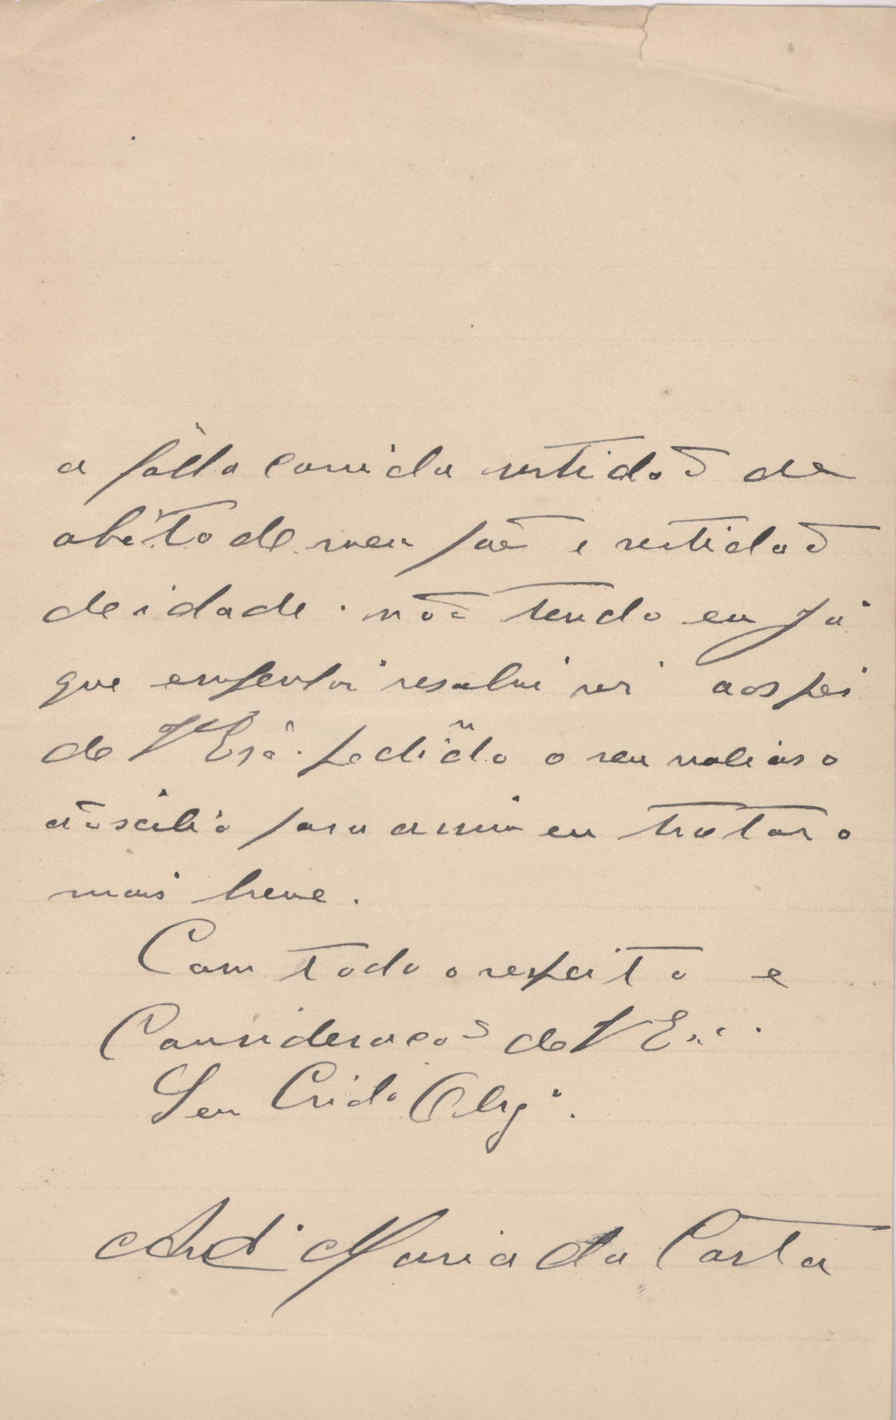 a falta certidaõ de
obito de meu pae e certidaõ
de idade. não tendo eu já
que resolvi vir aos pes
de V Exª. pedindo o seu valioso
auscilio para assim eu tratar o
mais breve.
Com todo o respeito e
Consideracaõ de V Exª.
Seu Cridº Obgº.
Antº Maria da Costa